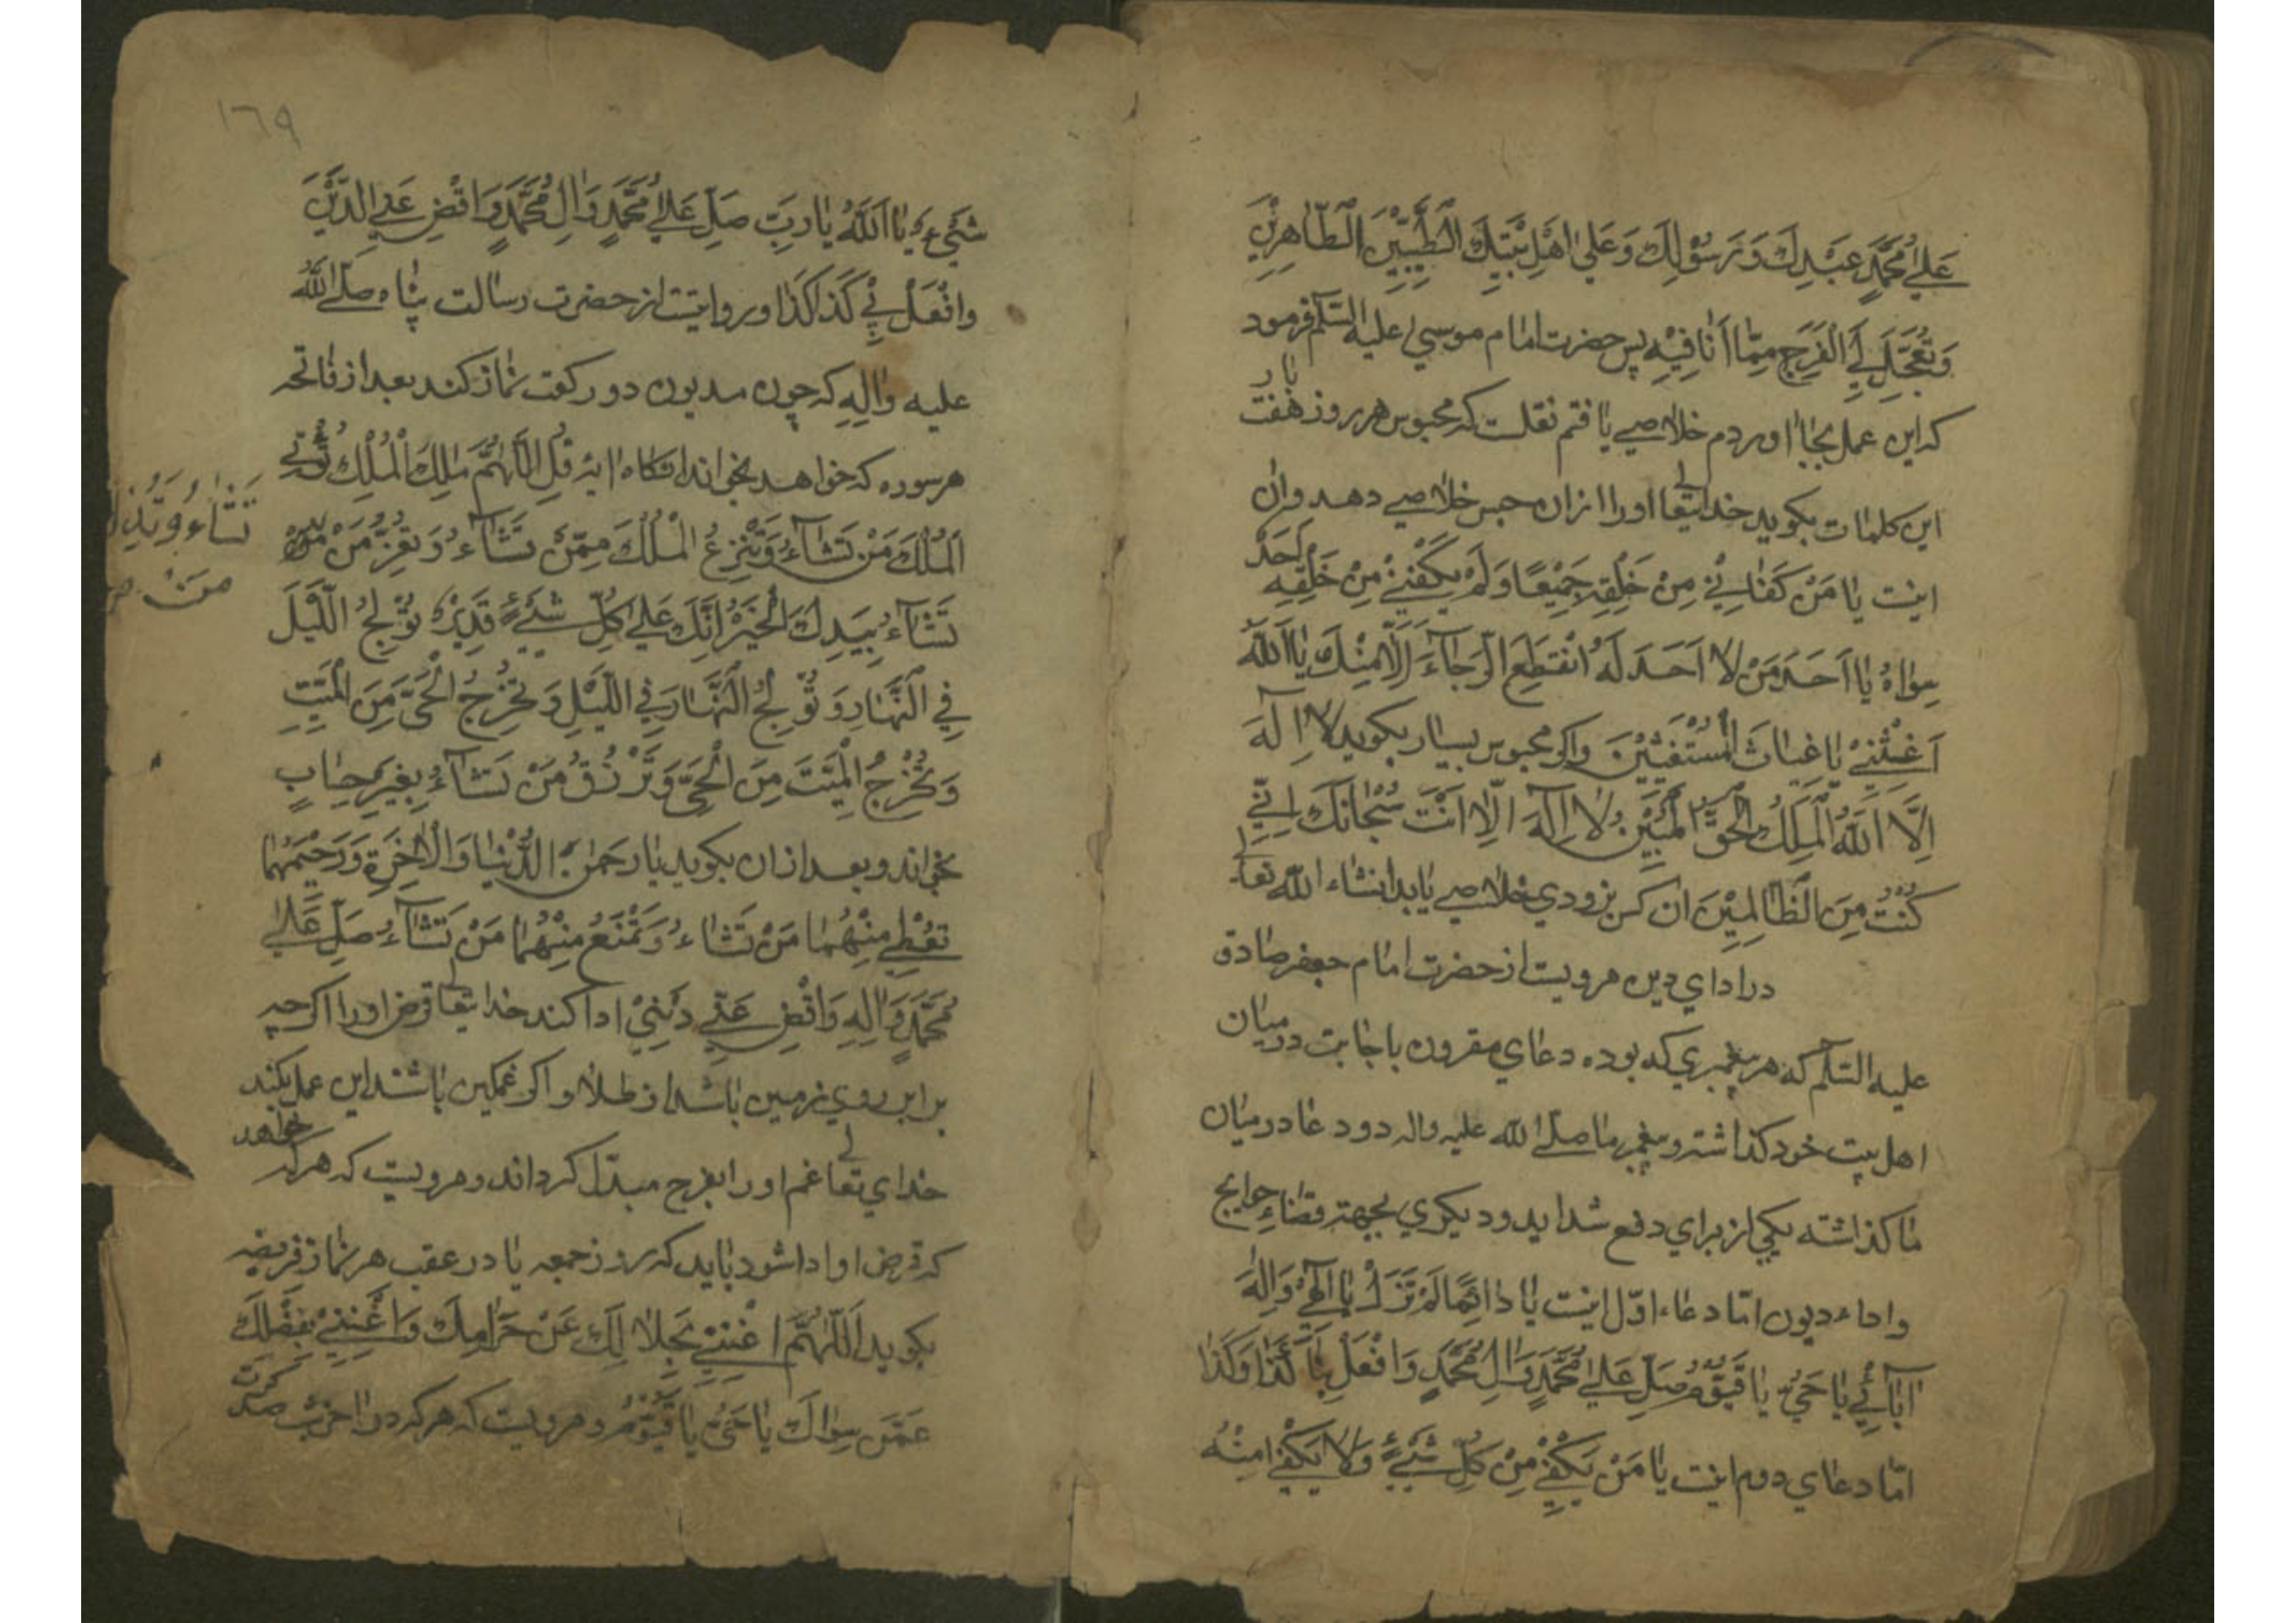 عَلٰي مُحَمَّدٍ عَبْدِكَ وَرَسُوْلِكَ وَعَلٰي اَهْلِ بَيْتِكَ الطَّيِّبِيْنَ الطَّاهِرِيْنَ
وَتُعَجِّلَ لِيَ الْفَرَجَ مِمَّا اَنَا فِيْهِ پس حضرت امام موسي عليه السّلم فرمود
كه اين عمل بجا اوردم خلاصي يافتم نقلست كه محبوس هر روز هفت بار
اين كلمات بكويد خدايتعالي او را از ان حبس خلاصي دهد وان
اينست يَا مَنْ كَفَانِيْ مِنْ خَلْقِهِ جَمِيْعًا وَلَمْ يَكْفِنِيْ مِنْ خَلْقِهِ اَحَدٌ
سِوَاهُ يَا اَحَدَ مَنْ لَا اَحَدَ لَهُ انْقَطَعَ الرَّجَآءَ اِلَّا مِنْكَ يَا اَللّٰهُ
اَغِثْنِيْ يَا غِيَاثَ الْمُسْتَغِيْثِيْنَ واكر محبوس بسيار بكويد لَا اِلٰهَ
اِلَّا اللّٰهُ الْمَلِكُ الْحَقُّ الْمُبِيْنُ لَا اِلٰهَ اِلَّا اَنْتَ سُبْحَانَكَ اِنِّيْ
كُنْتُ مِنَ الظَّالِمِيْنَ ان كس بزودي خلاصي يابد انشاء الله تعالي
در اداي دين مرويست از حضرت امام جعفر صادق
عليه السّلم كه هر پيغمبري كه بوده دعاي مقرون باجابت در ميان
اهل بيت خود كذاشته و پيغمبر ما صلّي الله عليه واله دو دعا در ميان
ما كذاشته يكي از براي دفع شدايد و ديكري بجهته قضاء حوايج
واداء ديون امّا دعاء اوّل اينست يَا دَائِمًا لَمْ تَزَلْ يَا اِلٰهِيْ وَاِلٰهَ
اٰبَآئِيْ يَا حَيُّ يَا قَيُّوْمُ صَلِّ عَلٰي مُحَمَّدٍ وَاٰلِ مُحَمَّدٍ وَافْعَلْ بِيْ كَذَا وَكَذَا
امّا دعاي دوم اينست يَا مَنْ يَكْفِيْ مِنْ كُلِّ شَيْءٍ وَلَا يَكْفِيْ مِنْهُ
١٦٩
شَيْءٌ يَا اَللّٰهُ يَا رَبِّ صَلِّ عَلٰي مُحَمَّدٍ وَاٰلِ مُحَمَّدٍ وَاقْضِ عَنِّي الدَّيْنَ
وَافْعَلْ بِيْ كَذَا كَذَا و روايتست از حضرت رسالت پناه صلّي الله
عليه واٰلِهِ كه چون مديون دو ركعت نماز كند بعد از فاتحه
هر سوره كه خواهد بخواند انكاه ايهٔ قُلِ اللّٰهُمَّ مٰلِكَ الْمُلْكِ تُؤْتِي
اَلْمُلْكَ مَنْ تَشَآءُ وَتَنْزِعُ الْمُلْكَ مِمَّنْ تَشَآءُ وَتُعِزُّ مَنْ
تَشَاءُ وَتُذِلُّ
مَنْ
تَشَآءُ بِيَدِكَ الْخَيْرُ اِنَّكَ عَلٰي كُلِّ شَيْءٍ قَدِيْرٌ تُوْلِجُ اللَّيْلَ
فِي النَّهَارِ وَتُوْلِجُ النَّهَارَ فِي اللَّيْلِ وَتُخْرِجُ الْحَيَّ مِنَ الْمَيِّتِ
وَتُخْرِجُ الْمَيِّتَ مِنَ الْحَيِّ وَتَرْزُقُ مَنْ تَشَآءُ بِغَيْرِ حِسَابٍ
بخواند و بعد از ان بكويد يَا رَحْمٰنَ الدُّنْيَا وَالْاٰخِرَةِ وَرَحِيْمَهُمَا
تُعْطِي مِنْهُمَا مَنْ تَشَاءُ وَتَمْنَعُ مِنْهُمَا مَنْ تَشَآءُ صَلِّ عَلٰي
مُحَمَّدٍ وَاٰلِهِ وَاقْضِ عَنِّي دَيْنِيْ ادا كند خدايتعالي قرض او را اكر چه
برابر روي زمين باشد از طلا و اكر غمكين باشد اين عمل بكند
خداي تعالي غم او را بفرج مبدّل كرداند و مرويست كه هر كه خواهد
كه قرض او ادا شود بايد كه روز جمعه يا در عقب هر نماز فريضه
بكويد اَللّٰهُمَّ اغْنِنِيْ بِحَلَالِكَ عَنْ حَرَامِكَ وَاغْنِنِيْ بِفَضْلِكَ
عَمَّنْ سِوَاكَ يَا حَيُّ يَا قَيُّوْمُ و مرويست كه هر كه در اخر شب صد كرت